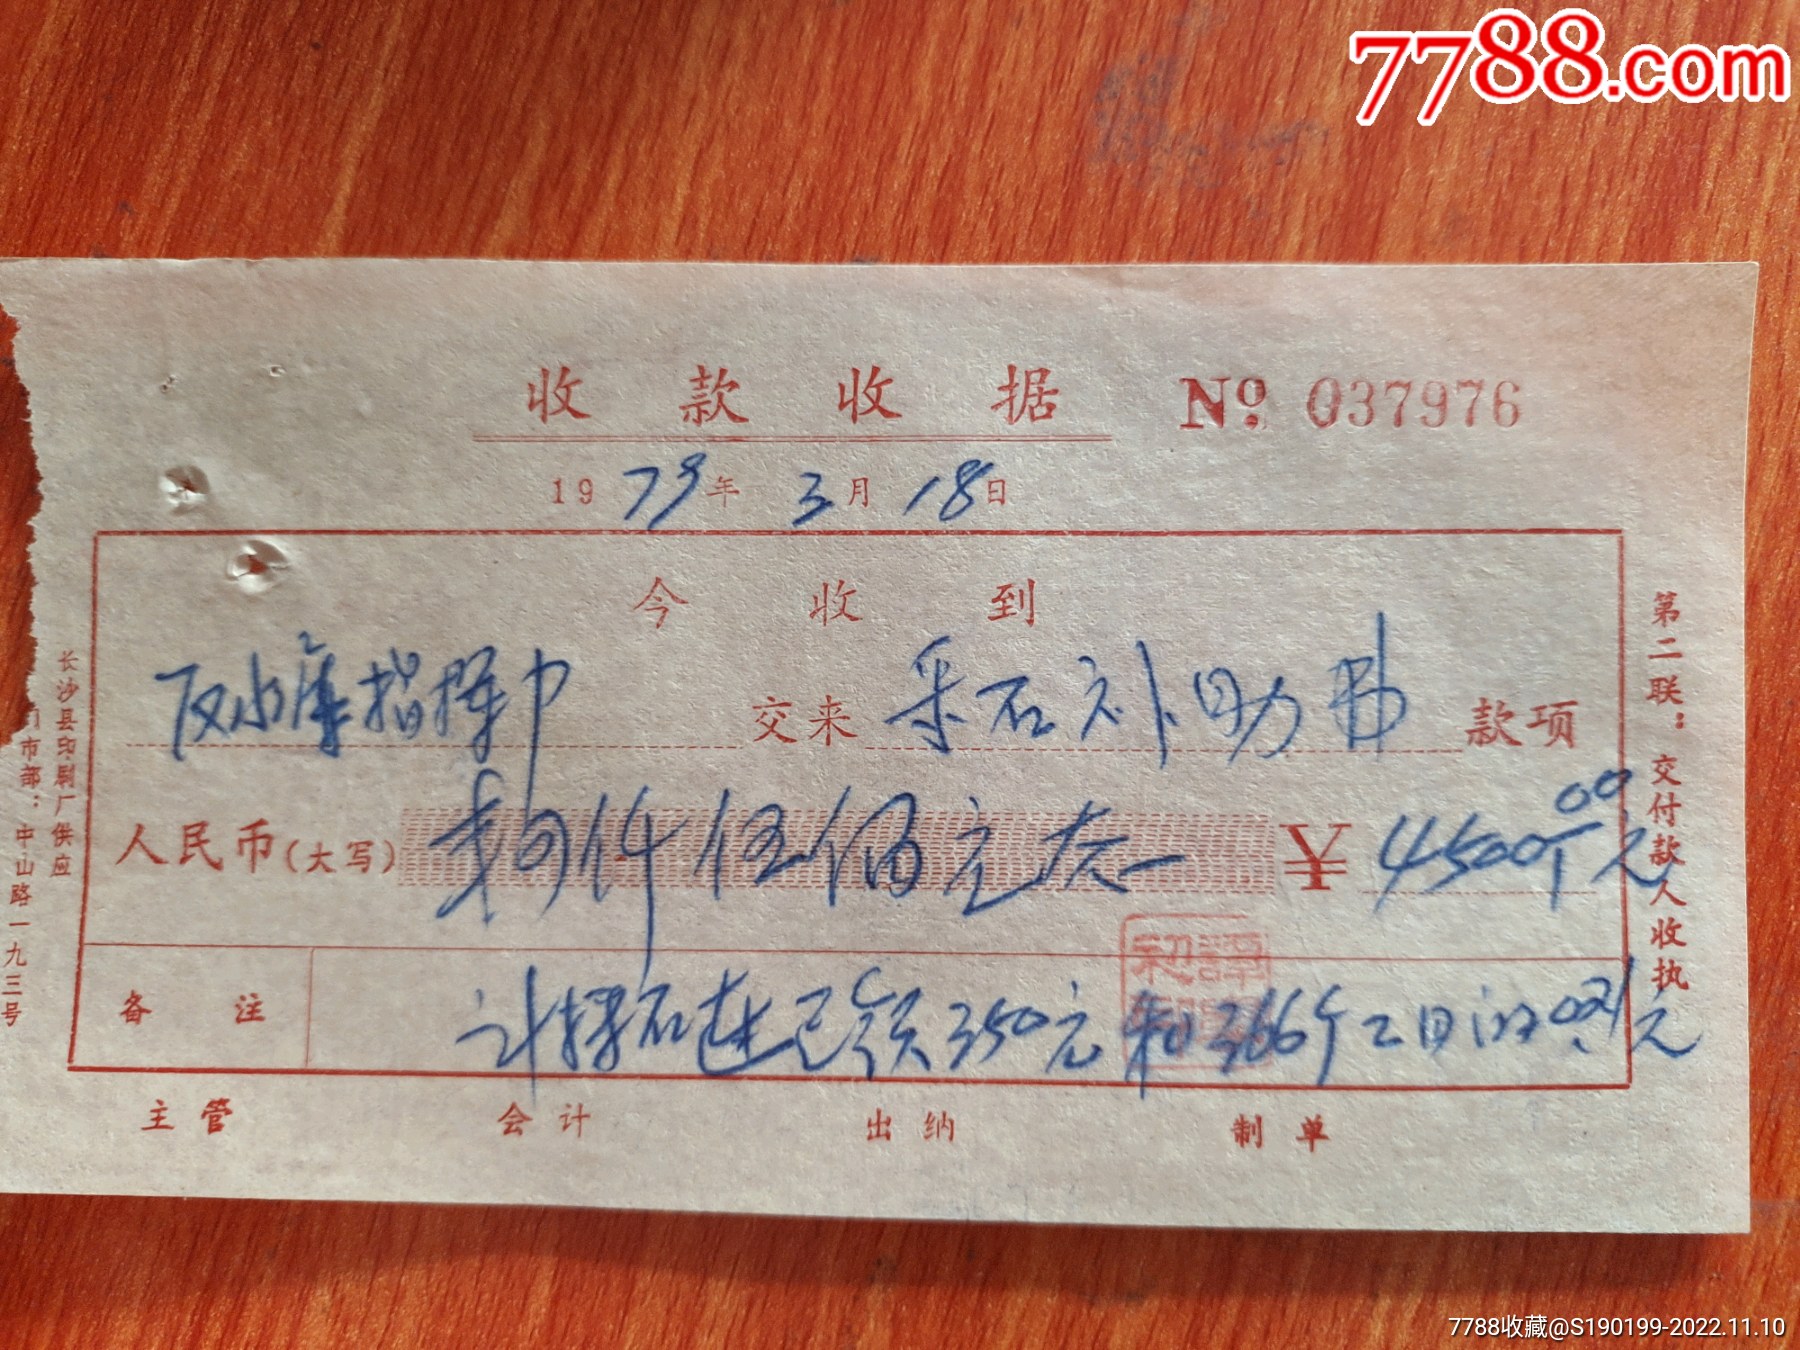 7788.com
收款收据 № 037976
1979年 3月 18日
今收到
水库指挥 交来 采石补助 款项
人民币(大写) 肆仟伍佰元 ¥ 4500.00元
备注 计 石 已领350元和366个工日的 元
主管 会计 出纳 制单
第二联：交付款人收执
长沙县印刷厂供应
门市部：中山路一九三号
7788收藏@S190199-2022.11.10